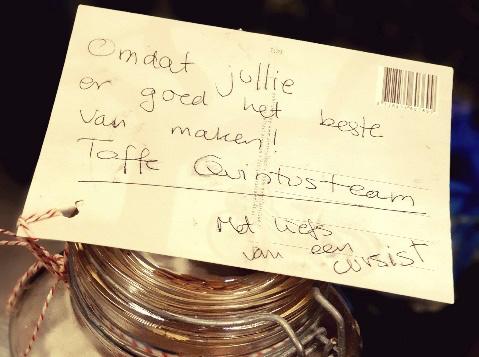 Omdat jullie
er goed het beste
van maken!
Toffe Quintusteam
Met liefs
van een
cursist